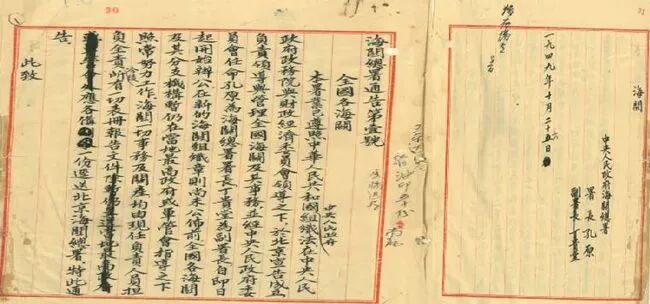 海關總署通告第壹號
全國各海關
本署業已遵照中華人民共和國組織法在中央人民
政府政務院與財政經濟委員會領導之下於北京宣告成立
負責領導與管理全國海關及其事務並經中央人民政府委
員會任命孔原為海關總署署長丁貴堂為副署長自即日
起開始辦公在新的海關組織章則尚未公佈前全國各海關
及其分支機構暫仍在當地最高政府或軍管會指導之下
照常努力工作海關一切事務及關產均由現任負責人員担
負全責所有一切表冊報告文件
應各備一份逕送北京海關總署特此通
告
此致
海關
中央人民政府海關總署
署長孔原
副署長丁貴堂
一九四九年十月二十五日